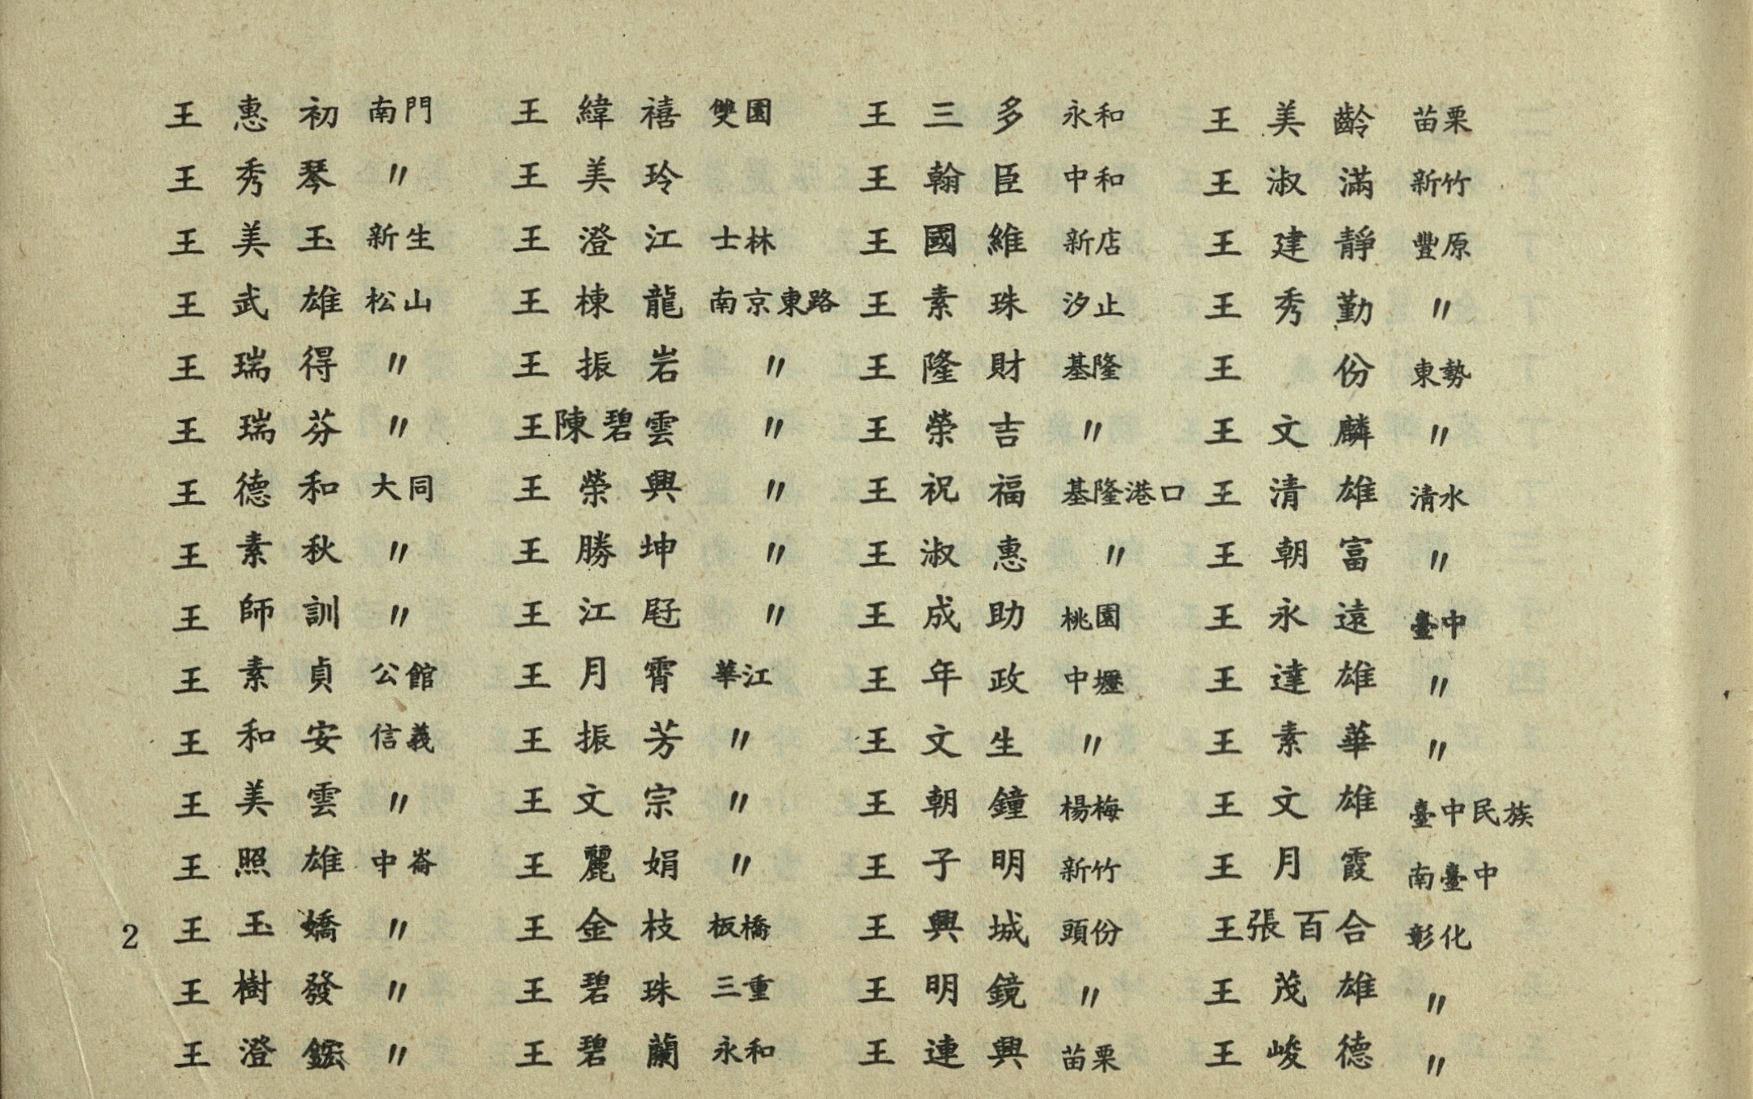 王惠初 南門 王緯禧 雙園 王三多 永和 王美齡 苗栗
王秀琴 〃 王美玲 王翰臣 中和 王淑滿 新竹
王美玉 新生 王澄江 士林 王國維 新店 王建靜 豐原
王武雄 松山 王棟龍 南京東路 王素珠 汐止 王秀勤 〃
王瑞得 〃 王振岩 〃 王隆財 基隆 王份 東勢
王瑞芬 〃 王陳碧雲 〃 王榮吉 〃 王文麟 〃
王德和 大同 王榮興 〃 王祝福 基隆港口 王清雄 清水
王素秋 〃 王勝坤 〃 王淑惠 〃 王朝富 〃
王師訓 〃 王江 〃 王成助 桃園 王永遠 臺中
王素貞 公館 王月霄 華江 王年政 中壢 王達雄 〃
王和安 信義 王振芳 〃 王文生 〃 王素華 〃
王美雲 〃 王文宗 〃 王朝鐘 楊梅 王文雄 臺中民族
王照雄 中崙 王麗娟 〃 王子明 新竹 王月霞 南臺中
2 王玉嬌 〃 王金枝 板橋 王興城 頭份 王張百合 彰化
王樹發 〃 王碧珠 三重 王明鏡 〃 王茂雄 〃
王澄 〃 王碧蘭 永和 王連興 苗栗 王峻德 〃